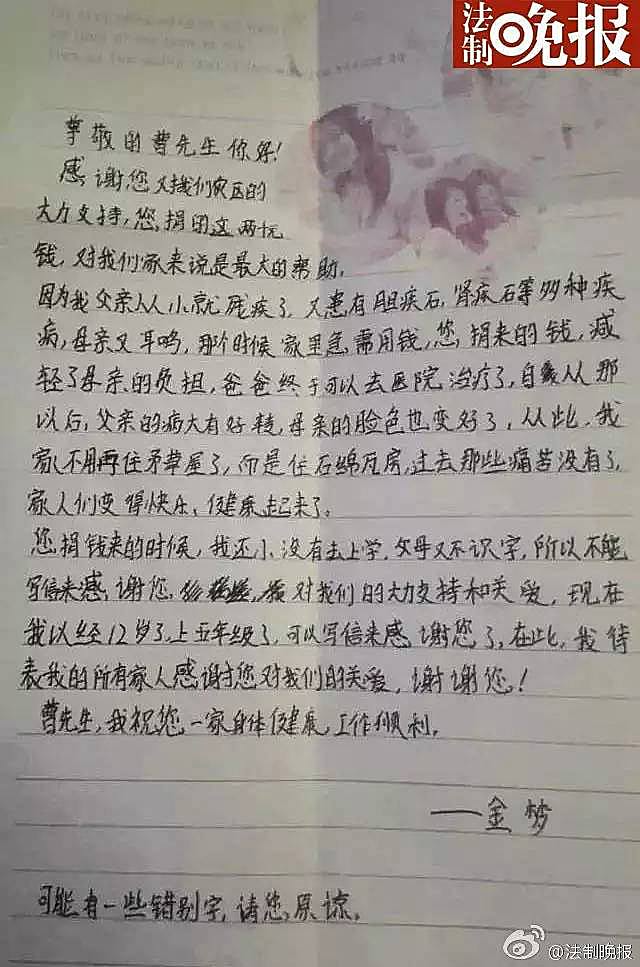 法制晚报
尊敬的曹先生你好!
感谢您又找我们灾区的
大力支持,您捐的这两沅
钱,对我们家来说是最大的帮助,
因为我父亲从小就残疾了,又患有胆疾石,肾疾石等多种疾
病,母亲又耳鸣,那个时候家里急需用钱,您捐来的钱,减
轻了母亲的负担,爸爸终于可以去医院治疗了,自从那
以后,父亲的病大有好转,母亲的脸色也变好了,从此,我
家不用再住矛草屋了,而是住石绵瓦房,过去那些痛苦没有了,
家人们变得快乐、健康起来了。
您捐钱来的时候,我还小,没有去上学,父母又不识字,所以不能
写信来感谢您,对我们的大力支持和关爱,现在
我以经12岁了,上五年级了,可以写信来感谢您了,在此,我待
表我的所有家人感谢您对我们的关爱,谢谢您!
曹先生,我祝您一家身体健康,工作顺利。
——金梦
可能有一些错别字,请您原谅。
@法制晚报